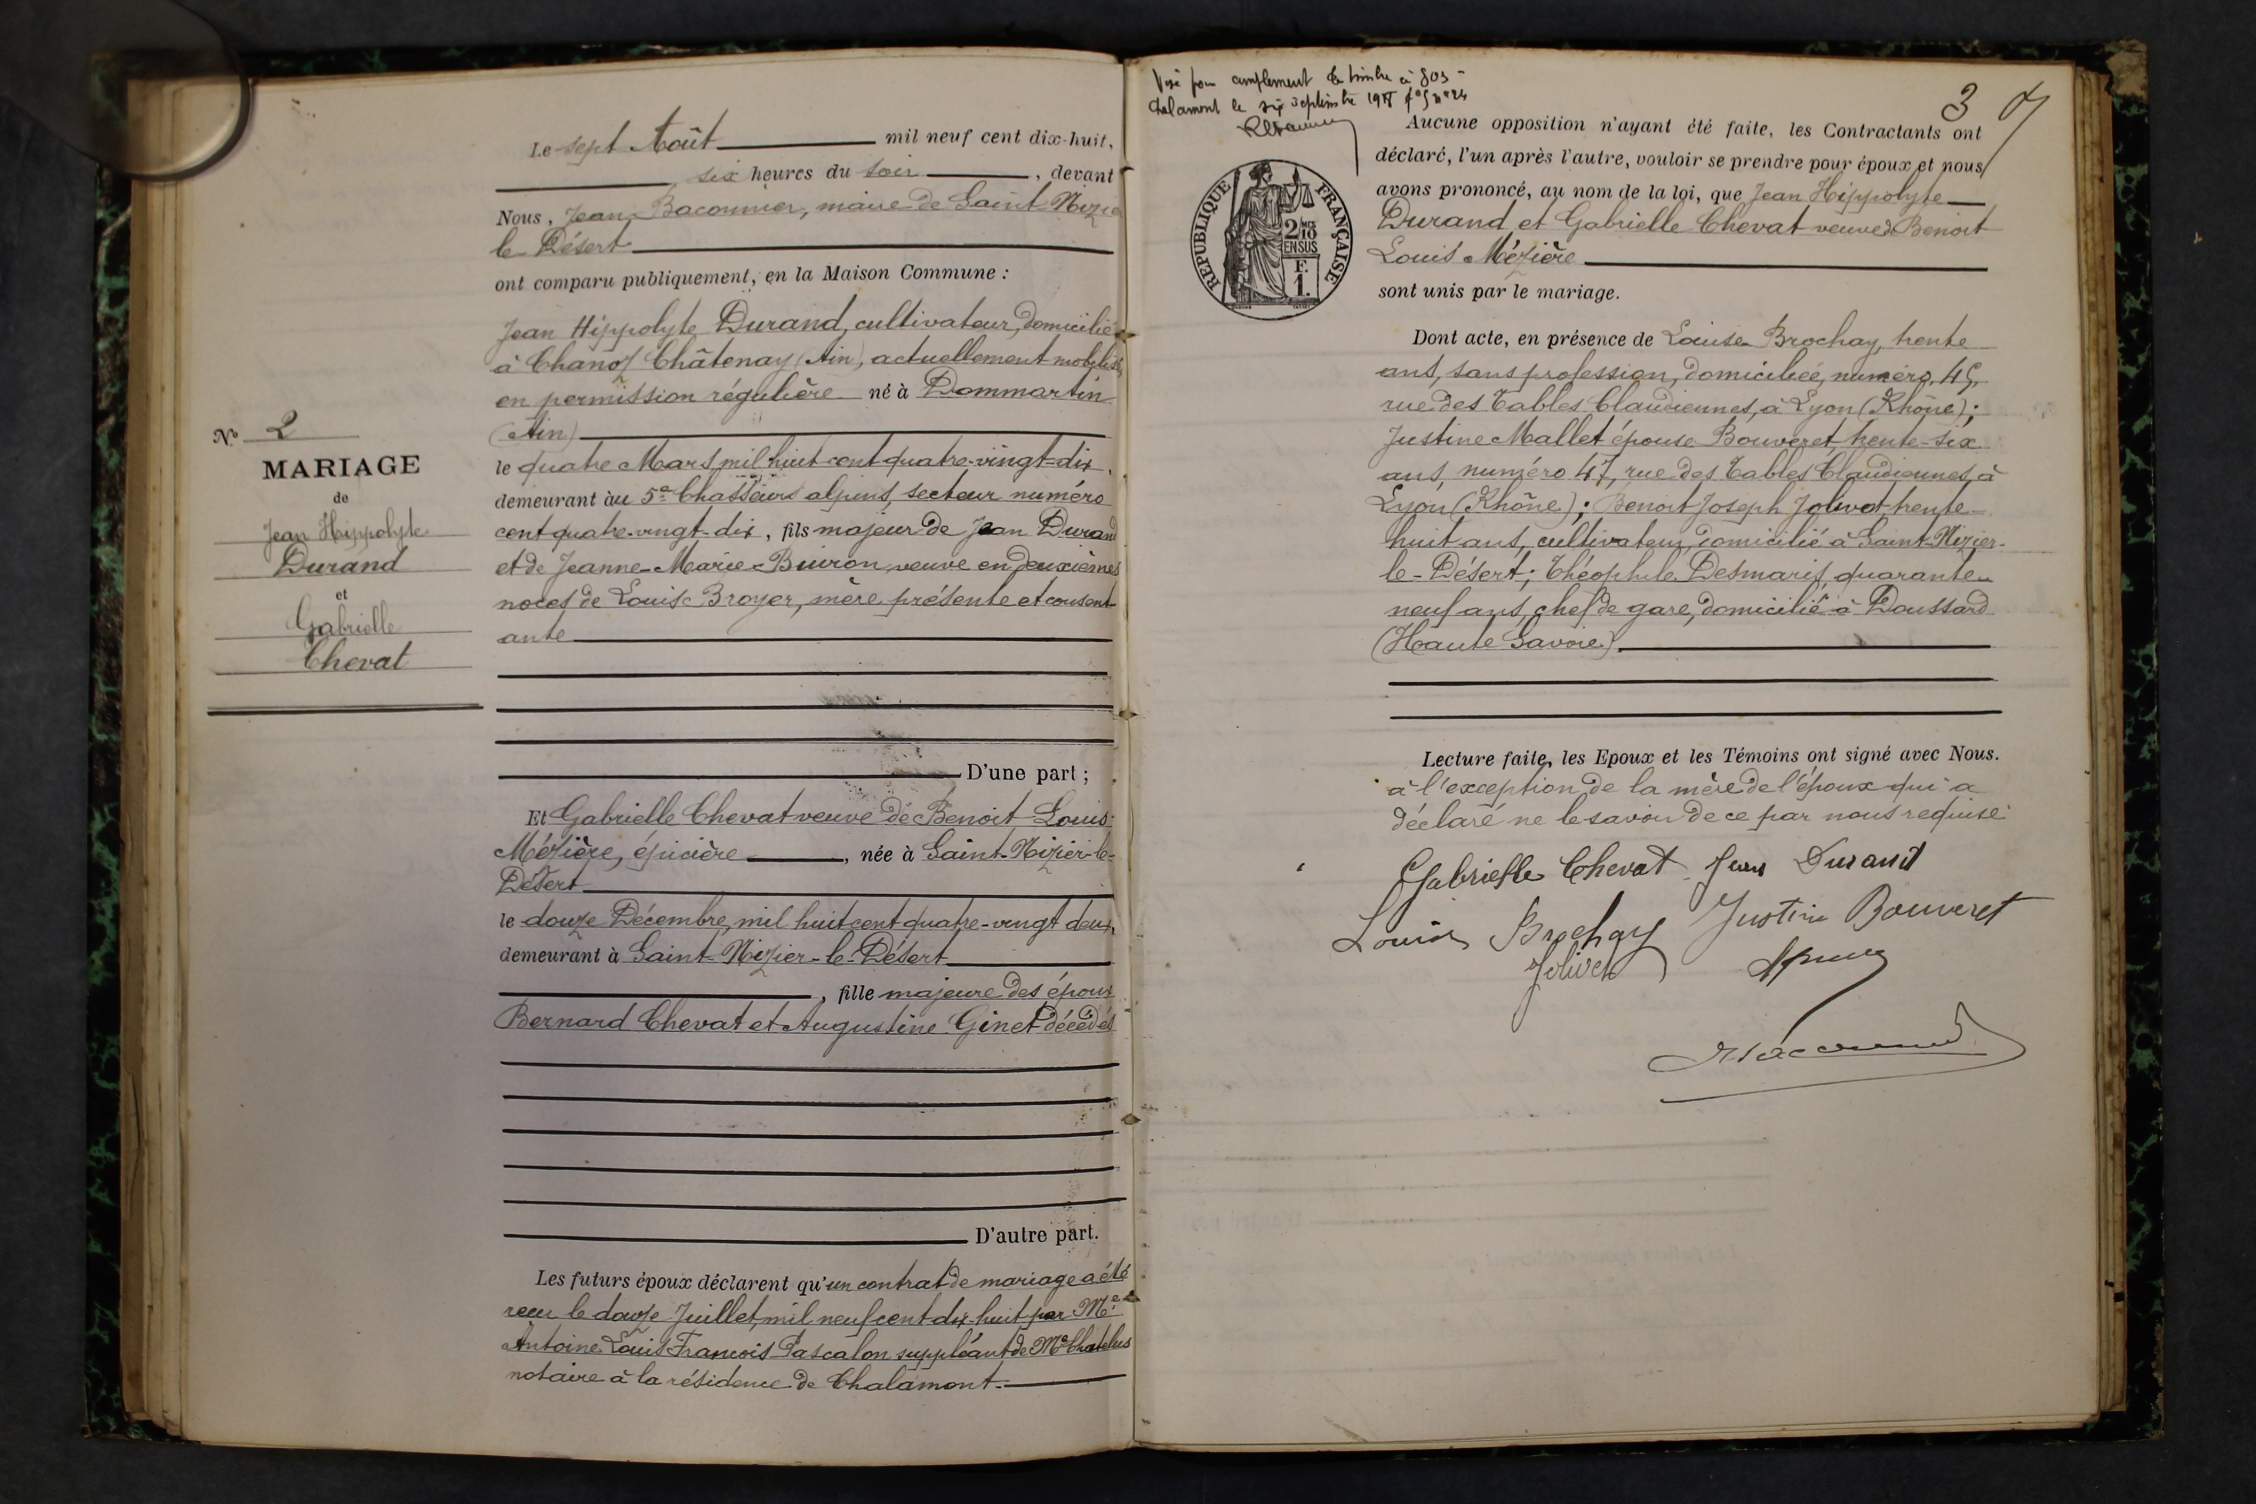 Le sept Août mil neuf cent dix-huit,
six heures du soir, devant
Nous, Jean Baconnier, maire de Saint Nizier
le Désert
ont comparu publiquement, en la Maison Commune :
Jean Hippolyte Durand, cultivateur, domicilié
à Chanoz Châtenay (Ain), actuellement mobilisé,
en permission régulière né à Dommartin
(Ain)
le quatre Mars mil huit cent quatre-vingt-dix,
demeurant au 5e Chasseurs alpins, secteur numéro
cent quatre-vingt-dix, fils majeur de Jean Durand
et de Jeanne-Marie Buiron veuve en deuxièmes
noces de Louis Broyer, mère présente et consent-
ante
D'une part ;
Nº 2
MARIAGE
de
Jean Hippolyte
Durand
et
Gabrielle
Chevat
Et Gabrielle Chevat veuve de Benoit Louis
Mézière, épicière, née à Saint-Nizier-le-
Désert
le douze Décembre, mil huit cent quatre-vingt deux,
demeurant à Saint-Nizier-le-Désert
, fille majeure des époux
Bernard Chevat et Augustine Ginet décédés
D'autre part.
Les futurs époux déclarent qu'un contrat de mariage a été
reçu le douze Juillet, mil neuf cent dix-huit par Me
Antoine Louis François Pascalon suppléant de Me Chatelus
notaire à la résidence de Chalamont.
Visé pour complément de timbre à
Chalamont le six septembre 1918
3
RÉPUBLIQUE FRANÇAISE
2/10
EN SUS
F.
1.
Aucune opposition n'ayant été faite, les Contractants ont
déclaré, l'un après l'autre, vouloir se prendre pour époux et nous
avons prononcé, au nom de la loi, que Jean Hippolyte
Durand et Gabrielle Chevat veuve de Benoit
Louis Mézière
sont unis par le mariage.
Dont acte, en présence de Louise Brochay, trente
ans, sans profession, domiciliée, numéro 45,
rue des Tables Claudiennes, à Lyon (Rhône) ;
Justine Mallet épouse Bouveret, trente-six
ans, numéro 47, rue des Tables Claudiennes, à
Lyon (Rhône) ; Benoit Joseph Jolivet, trente-
huit ans, cultivateur, domicilié à Saint-Nizier-
le-Désert ; Théophile Desmaris, quarante-
neuf ans, chef de gare, domicilié à Doussard
(Haute Savoie)
Lecture faite, les Epoux et les Témoins ont signé avec Nous.
à l'exception de la mère de l'époux qui a
déclaré ne le savoir de ce par nous requise
Gabrielle Chevat Jean Durand
Louise Brochay Justine Bouveret
Jolivet